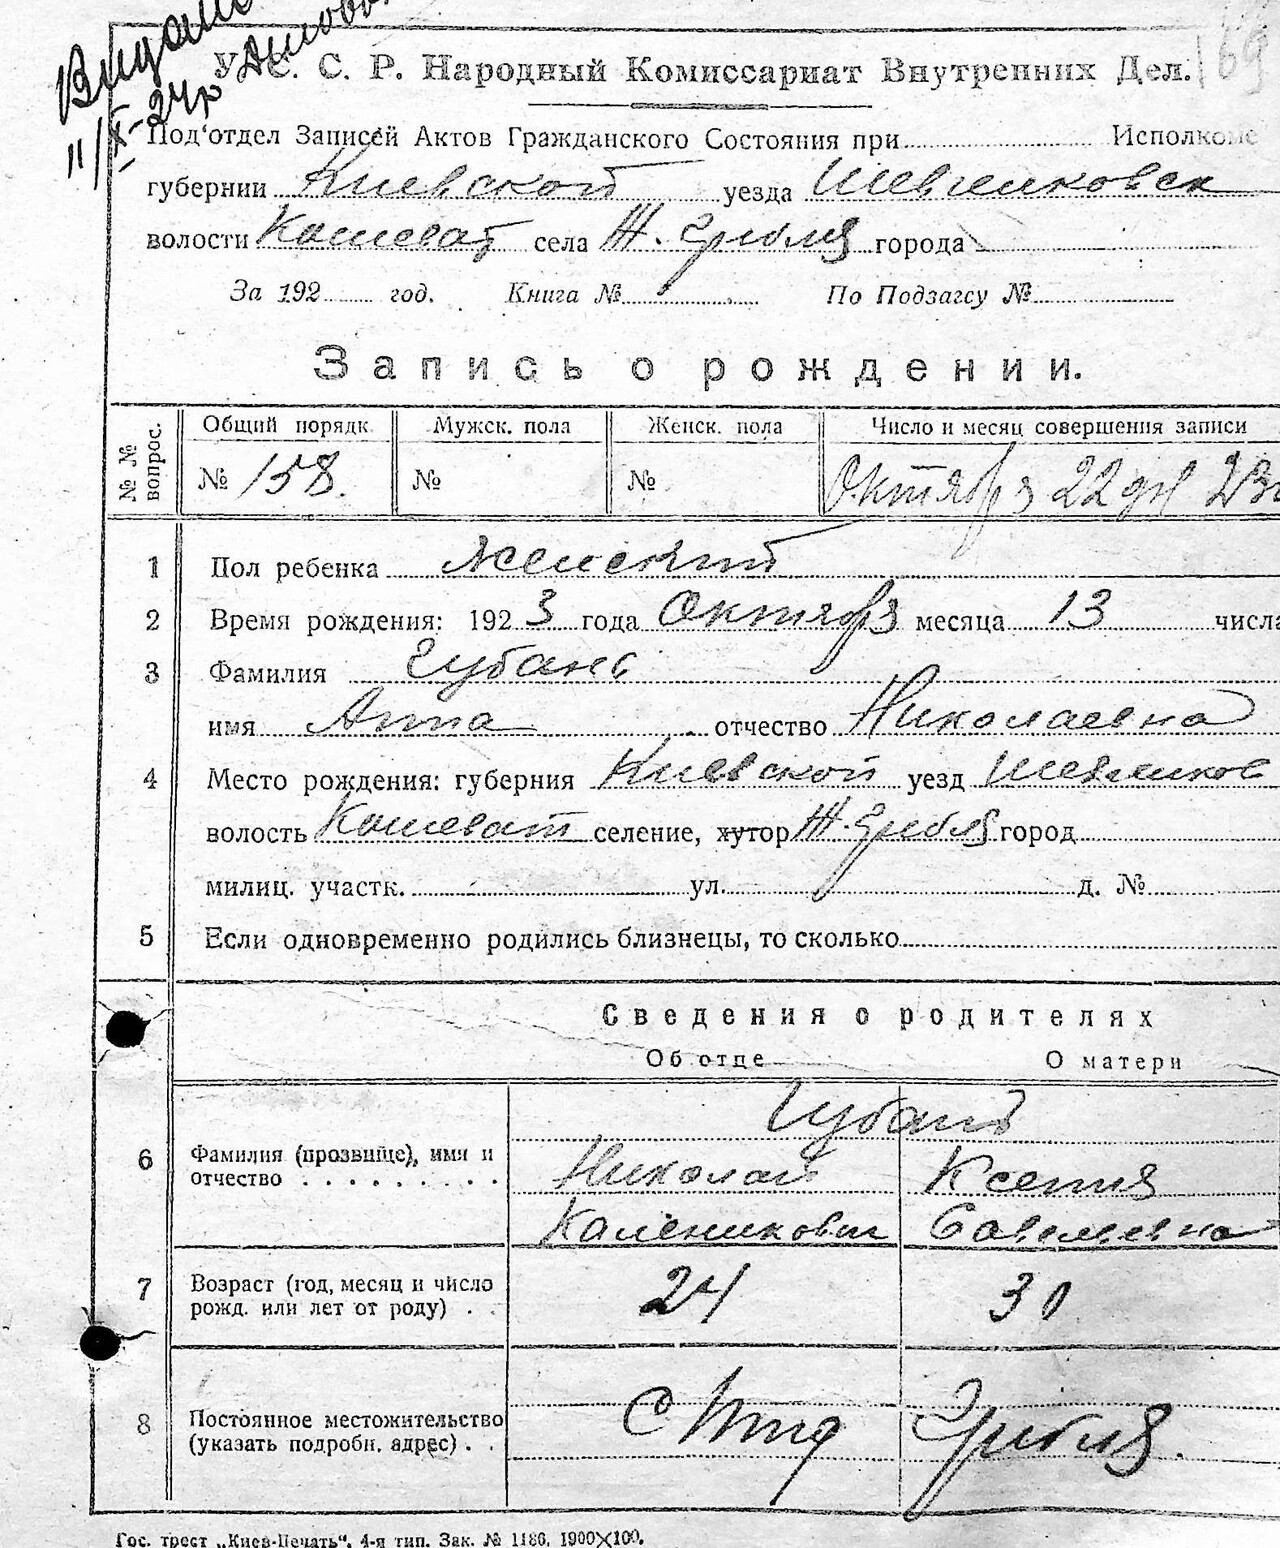 169
11/X-24р
У. С. С. Р. Народный Комиссариат Внутренних Дел.
Под'отдел Записей Актов Гражданского Состояния при Исполкоме
губернии Киевской уезда Шевченковск
волости Кошеват села Ж. Гребля города
За 192 год. Книга № По Подзагсу №
Запись о рождении.
№ № вопрос. Общий порядк. Мужск. пола Женск. пола Число и месяц совершения записи
№ 158. № № Октября 22 дня 23г
1 Пол ребенка женский
2 Время рождения: 1923 года Октября месяца 13 числа
3 Фамилия Чубань
имя Анна отчество Николаевна
4 Место рождения: губерния Киевской уезд Шевченков
волость Кошеват селение, хутор Ж. Гребля город
милиц. участк. ул. д. №
5 Если одновременно родились близнецы, то сколько
Сведения о родителях
Об отце О матери
Чубань
6 Фамилия (прозвище), имя и Николай Ксения
отчество Каленикович Савельевна
7 Возраст (год, месяц и число 24 30
рожд. или лет от роду)
8 Постоянное местожительство С Гребля.
(указать подробн. адрес)
Гос. трест „Киев-Печать“, 4-я тип. Зак. № 1186, 1900×100.